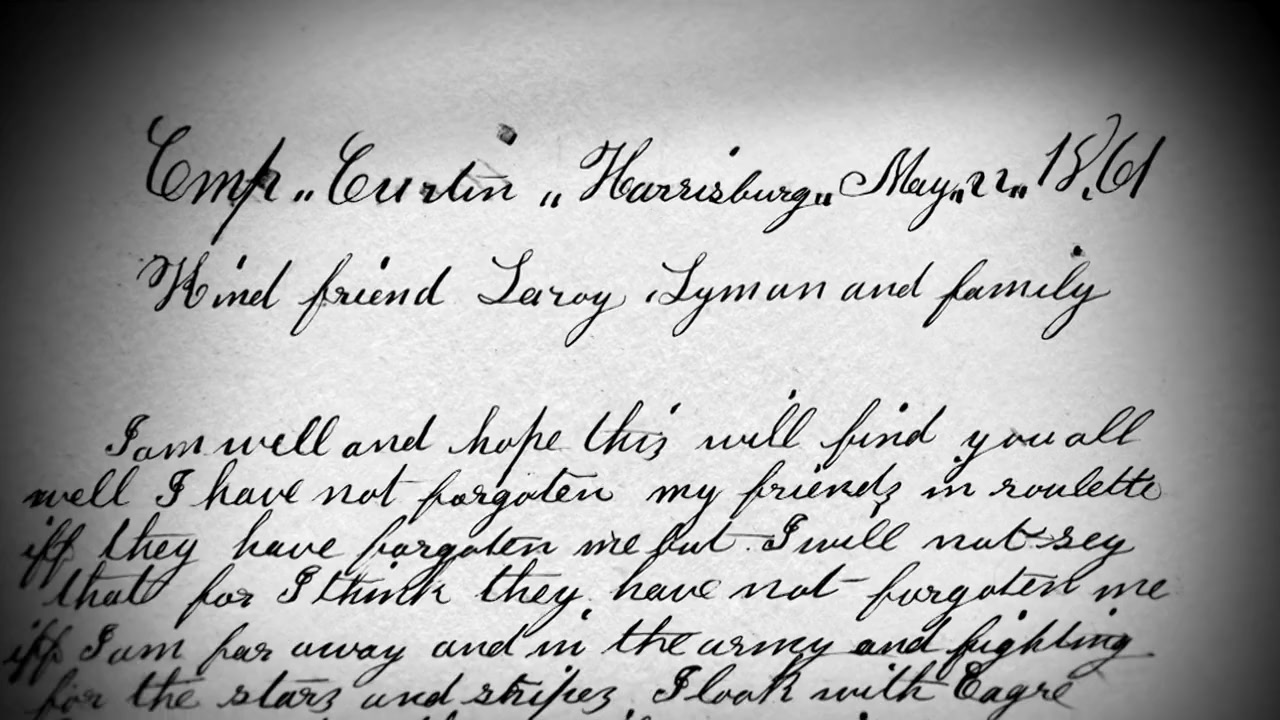 Cmp " Curtin " Harrisburg " May " 22 " 1861
Kind friend Laroy Lyman and family
I am well and hope this will find you all
well I have not forgoten my friends in roulette
iff they have forgoten me but I will not sey
that for I think they have not forgoten me
iff I am far away and in the army and fighting
for the stars and stripes I look with Eagre